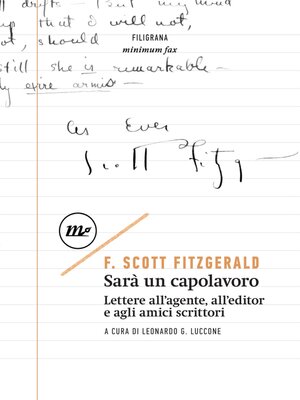 up that I will not,
should
still she is remarkable —
FILIGRANA
minimum fax
As Ever
Scott Fitzg
mf
F. SCOTT FITZGERALD
Sarà un capolavoro
Lettere all'agente, all'editor
e agli amici scrittori
A CURA DI LEONARDO G. LUCCONE